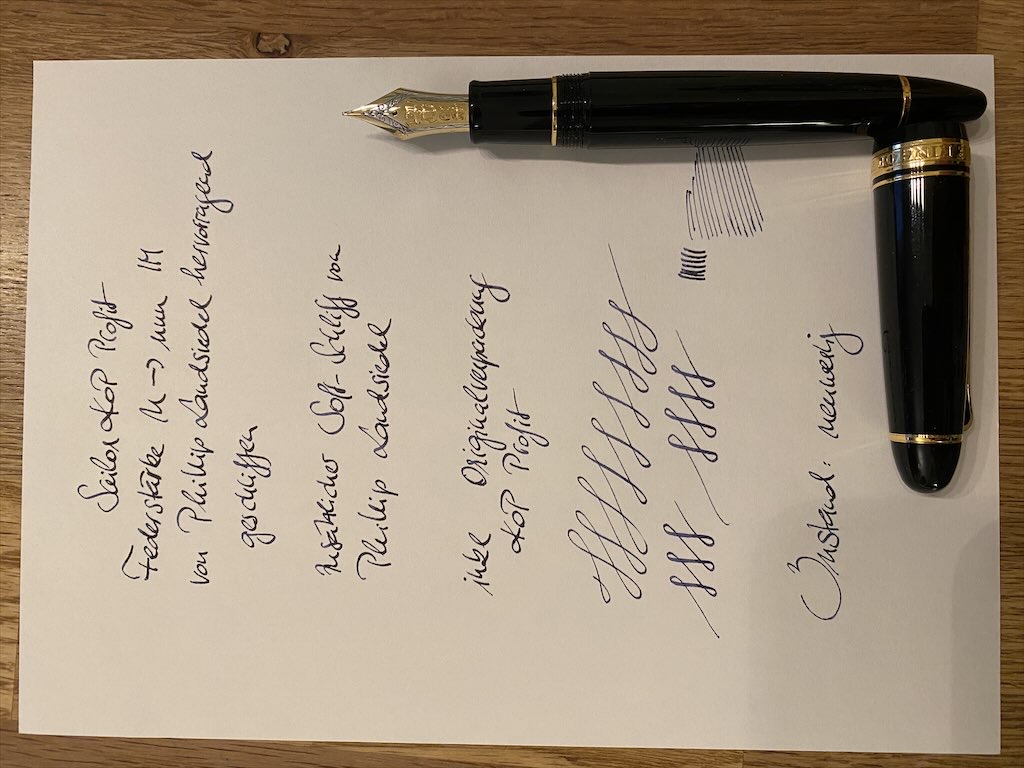 Sailor KOP Profit
Federstärke M → nun M
von Philip Landsiedel hervorragend
geschliffen
zusätzlicher Soft-Schliff von
Philip Landsiedel
inkl Originalverpackung
KOP Profit
Zustand: neuwertig